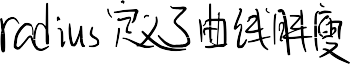 radius定义了曲线胖瘦